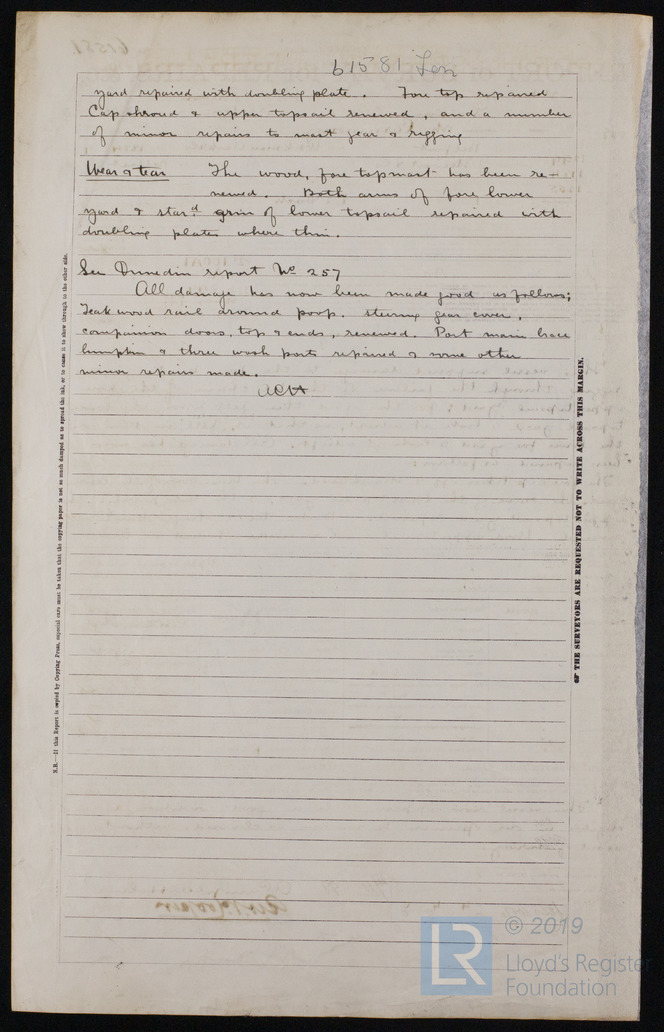 61581 Lon
yard repaired with doubling plate. Fore top repaired
Cap shroud & upper topsail renewed, and a number
of minor repairs to mast gear & rigging
Wear & tear The wood, fore topmast has been re-
newed. Both arms of fore lower
yard & star.d of lower topsail repaired with
doubling plates where thin.
See Dunedin report No 257
All damage has now been made good as follows;
Teakwood rail around poop. steering gear cover,
companion doors, top & ends, renewed. Port main brace
bumpkin & three wash ports repaired & some other
minor repairs made.
N.B.—If this Report is copied by Copying Press, especial care must be taken that the copying paper is not so much damped as to spread the ink, or to cause it to show through to the other side.
THE SURVEYORS ARE REQUESTED NOT TO WRITE ACROSS THIS MARGIN.
LR
© 2019
Lloyd's Register
Foundation